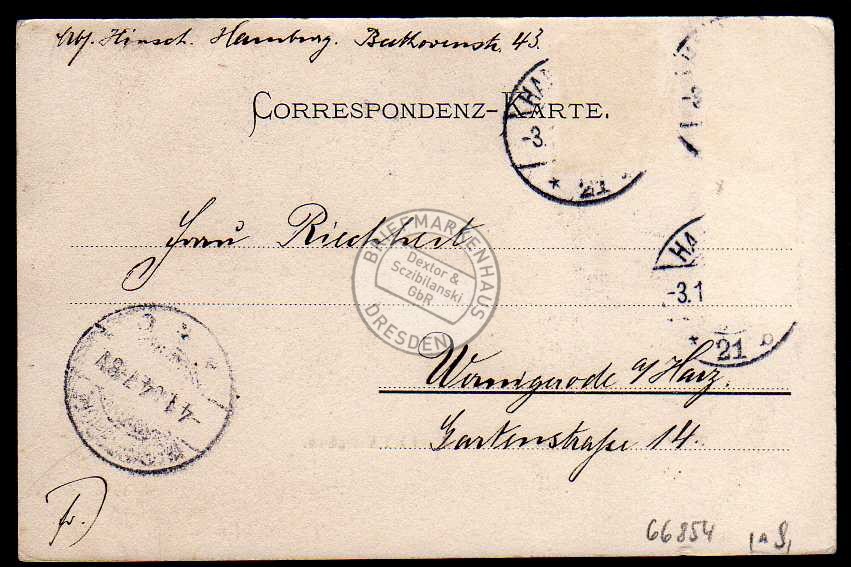 Abf. Hinsch. Hamburg. Beethovenstr. 43.
CORRESPONDENZ-KARTE.
HA
-3.
* 21
Frau Riechheit
BRIEFMARKENHAUS
Dextor &
Sczibilanski
GbR
DRESDEN
HA
-3.1
* 21 b
Wernigerode a/Harz.
Gartenstraße 14.
4.1.04.7-8V
Fr.)
66854